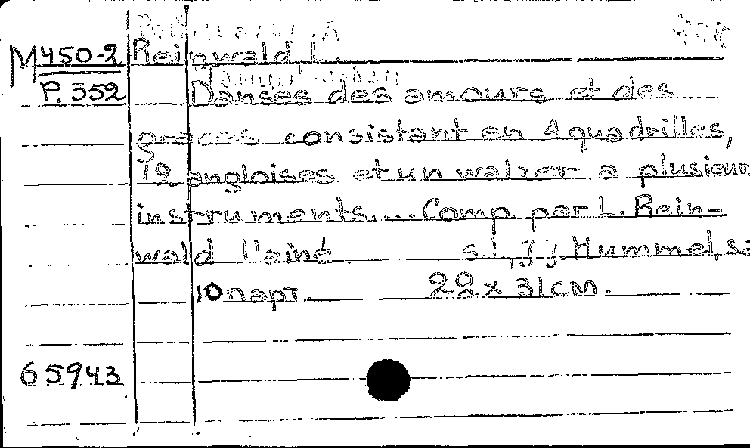 M450-2 Reinwald L.
P. 352 Danses des amours et des
graces consistant en 4 quadrilles,
12 angloises et un walzer a plusieurs
instruments.... Comp. par L. Rein-
wald l'ainé s.l., J. J. Hummel, s.a
10 парт. 22 x 31 см.
65943